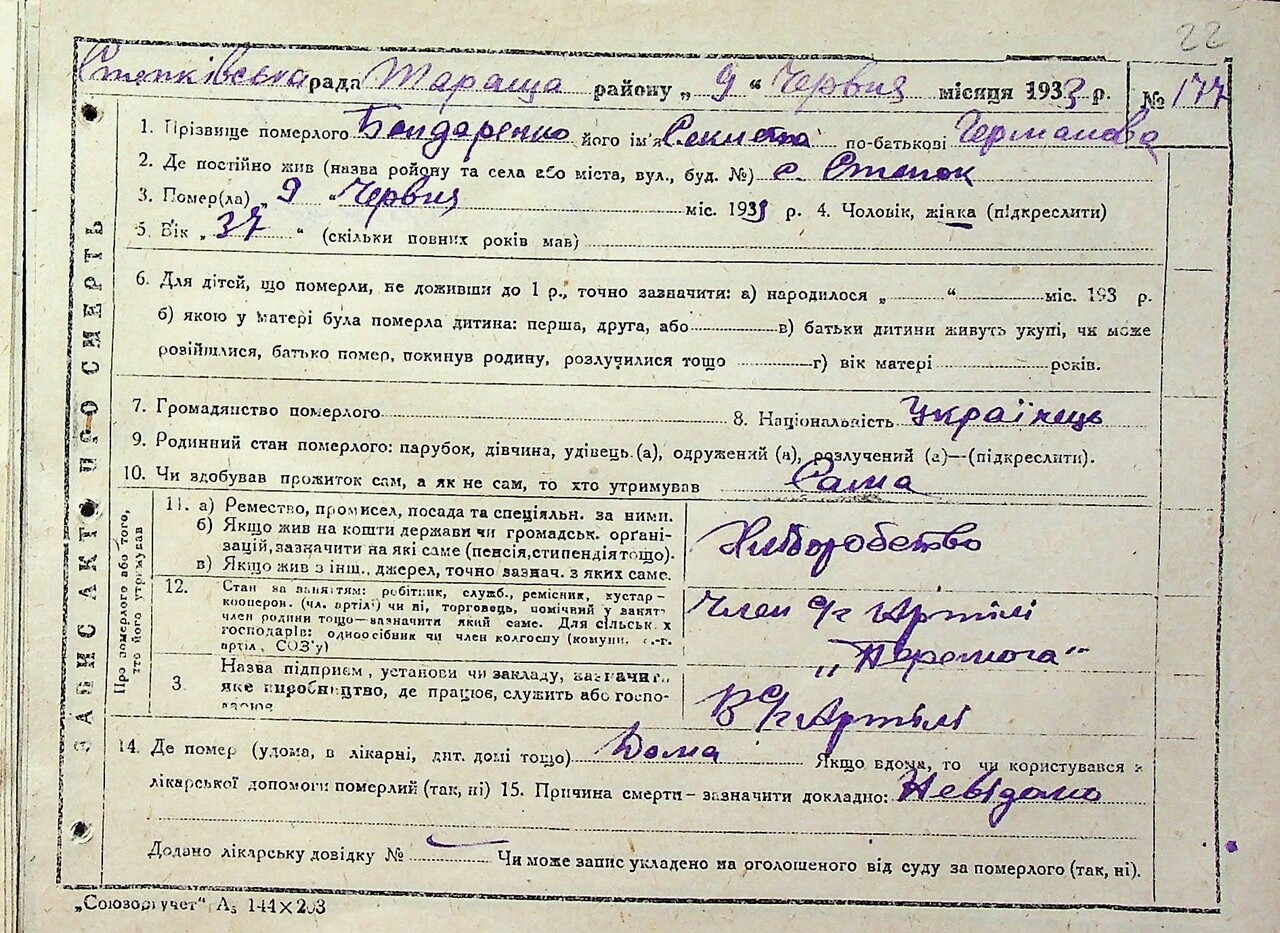 22
Степківська рада Тараща району „ 9 “ Червня місяця 1933 р. № 177
ЗАПИС АКТ ПРО СМЕРТЬ
1. Прізвище померлого Бондаренко його ім'я по-батькові Германова
2. Де постійно жив (назва району та села або міста, вул., буд. №) с. Степок
3. Помер(ла) „ 9 “ Червня міс. 1933 р. 4. Чоловік, жінка (підкреслити)
5. Вік „ 37 “ (скільки повних років мав)
6. Для дітей, що померли, не доживши до 1 р., точно зазначити: а) народилося „ “ міс. 193 р.
б) якою у матері була померла дитина: перша, друга, або в) батьки дитини живуть укупі, чи може
розійшлися, батько помер, покинув родину, розлучилися тощо г) вік матері років.
7. Громадянство померлого 8. Національність Українець
9. Родинний стан померлого: парубок, дівчина, удівець (а), одружений (а), розлучений (а)—(підкреслити).
10. Чи здобував прожиток сам, а як не сам, то хто утримував Сама
Про померлого або того, хто його утримував
11. а) Ремество, промисел, посада та спеціяльн. за ними.
б) Якщо жив на кошти держави чи громадськ. орґані-
зацій, зазначити на які саме (пенсія, стипендія тощо).
в) Якщо жив з інш., джерел, точно зазнач. з яких саме.
Хліборобство
12. Стан за заняттям: робітник, служб., ремісник, кустар-
кооперов. (чл. артілі) чи ні, торговець, помічний у занят.
член родини тощо—зазначити який саме. Для сільськ х
господарів: одноосібник чи член колгоспу (комуни, с.-г.
артіл, СОЗ'у)
Член с/г Артілі
„Перемога“
3. Назва підприєм, установи чи закладу, зазначить
яке виробництво, де працює, служить або госпо-
дарює
В с/г Артілі
14. Де помер (удома, в лікарні, дит. домі тощо) Дома Якщо вдома, то чи користувався з
лікарської допомоги померлий (так, ні) 15. Причина смерти – зазначити докладно: Невідомо
Додано лікарську довідку № Чи може запис укладено на оголошеного від суду за померлого (так, ні).
„Союзоргучет“ А₅ 144×203